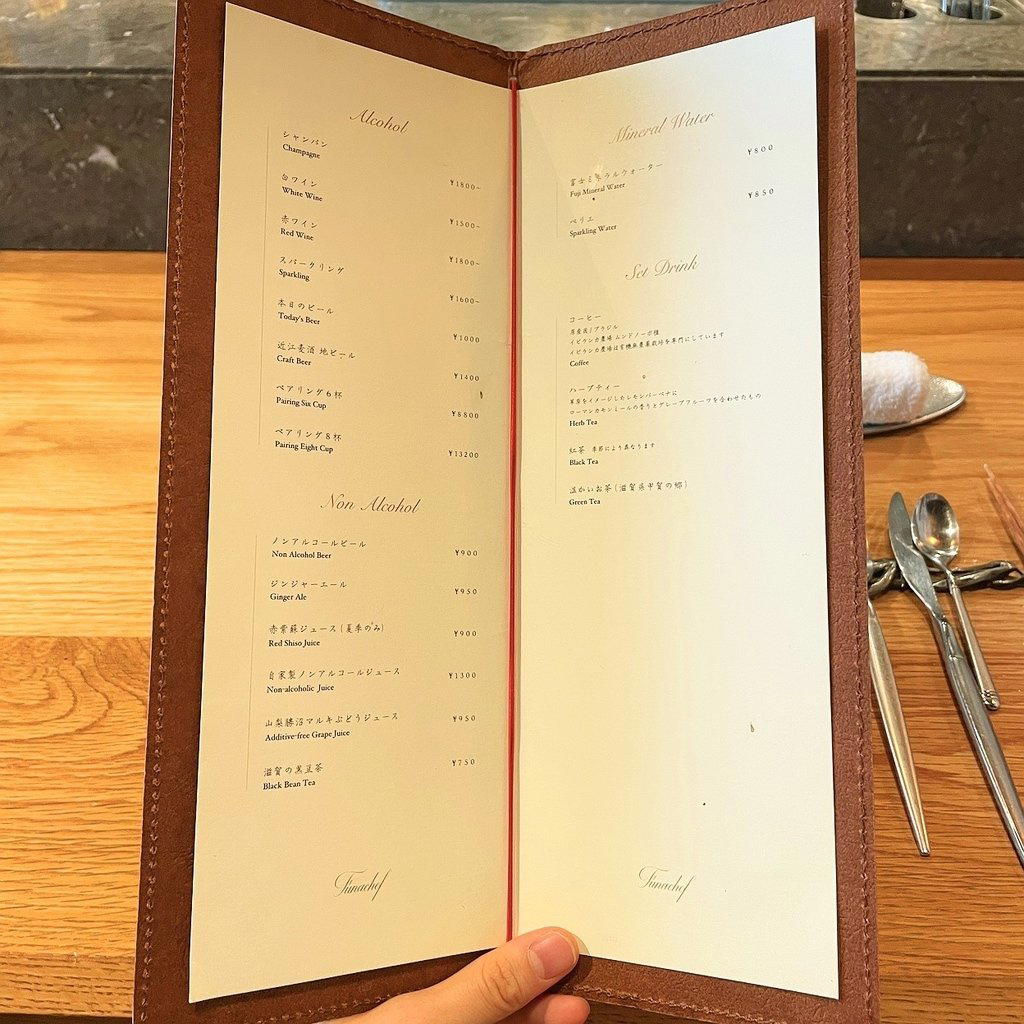 Alcohol
シャンパン
Champagne
¥1800~
白ワイン
White Wine
¥1500~
赤ワイン
Red Wine
¥1800~
スパークリング
Sparkling
¥1600~
本日のビール
Today's Beer
¥1000
近江麦酒 地ビール
Craft Beer
¥1400
ペアリング6杯
Pairing Six Cup
¥8800
ペアリング8杯
Pairing Eight Cup
¥13200
Non Alcohol
ノンアルコールビール
Non Alcohol Beer
¥900
ジンジャーエール
Ginger Ale
¥950
赤紫蘇ジュース(夏季のみ)
Red Shiso Juice
¥900
自家製ノンアルコールジュース
Non-alcoholic Juice
¥1300
山梨勝沼マルキぶどうジュース
Additive-free Grape Juice
¥950
滋賀の黒豆茶
Black Bean Tea
¥750
Funachef
Mineral Water
¥800
富士ミネラルウォーター
Fuji Mineral Water
¥850
ペリエ
Sparkling Water
Set Drink
コーヒー
原産国/ブラジル
イピランカ農場 ムンドノーボ種
イピランカ農場は有機無農薬栽培を専門にしています
Coffee
ハーブティー
草原をイメージしたレモンバーベナに
ローマンカモンミールの香りとグレープフルーツを合わせたもの
Herb Tea
紅茶 季節により異なります
Black Tea
温かいお茶(滋賀県甲賀の郷)
Green Tea
Funachef